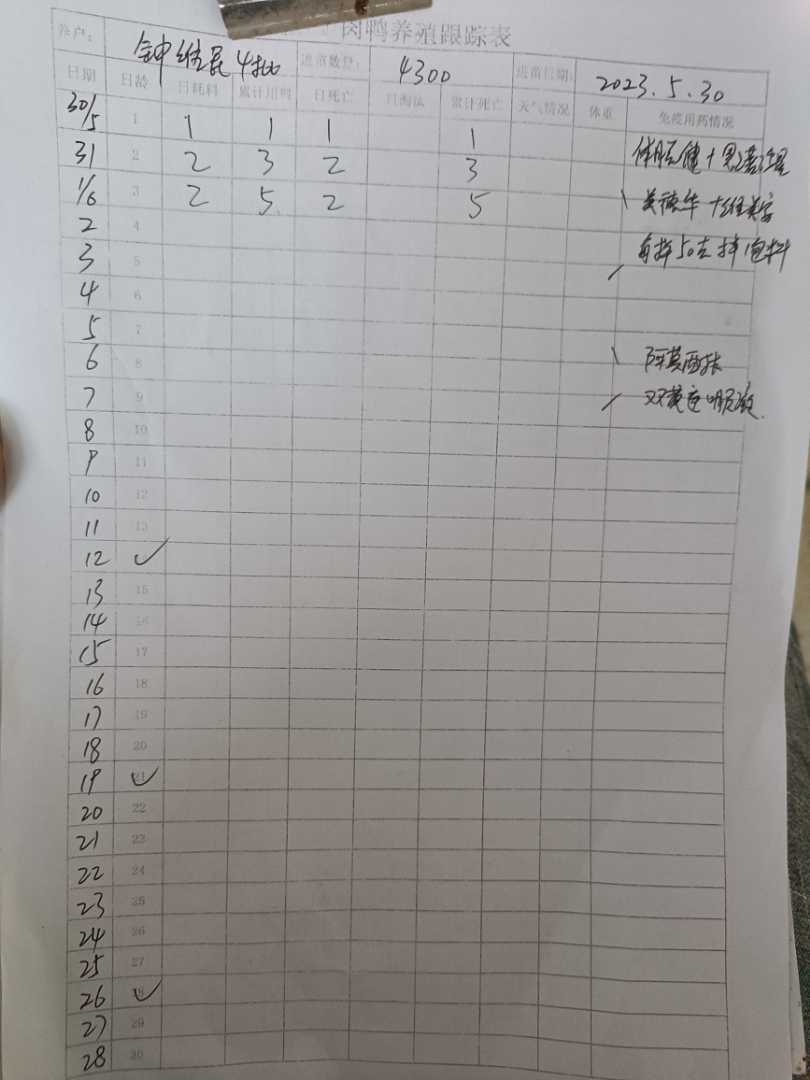 肉鸭养殖跟踪表
养户： 钟维昆4批 进苗数量： 4300 进苗日期： 2023.5.30
日期 日龄 日耗料 累计用料 日死亡 日淘汰 累计死亡 天气情况 体重 免疫用药情况
30/5 1 1 1 1 1
31 2 2 3 2 3
1/6 3 2 5 2 5 美德华+维美安
2 4 每拌50支拌1包料
3 5
4 6
5 7
6 8 阿莫西林
7 9 双黄连口服液
8 10
9 11
10 12
11 13
12 ✓
13 15
14 16
15 17
16 18
17 19
18 20
19 21 ✓
20 22
21 23
22 24
23 25
24 26
25 27
26 28 ✓
27 29
28 30